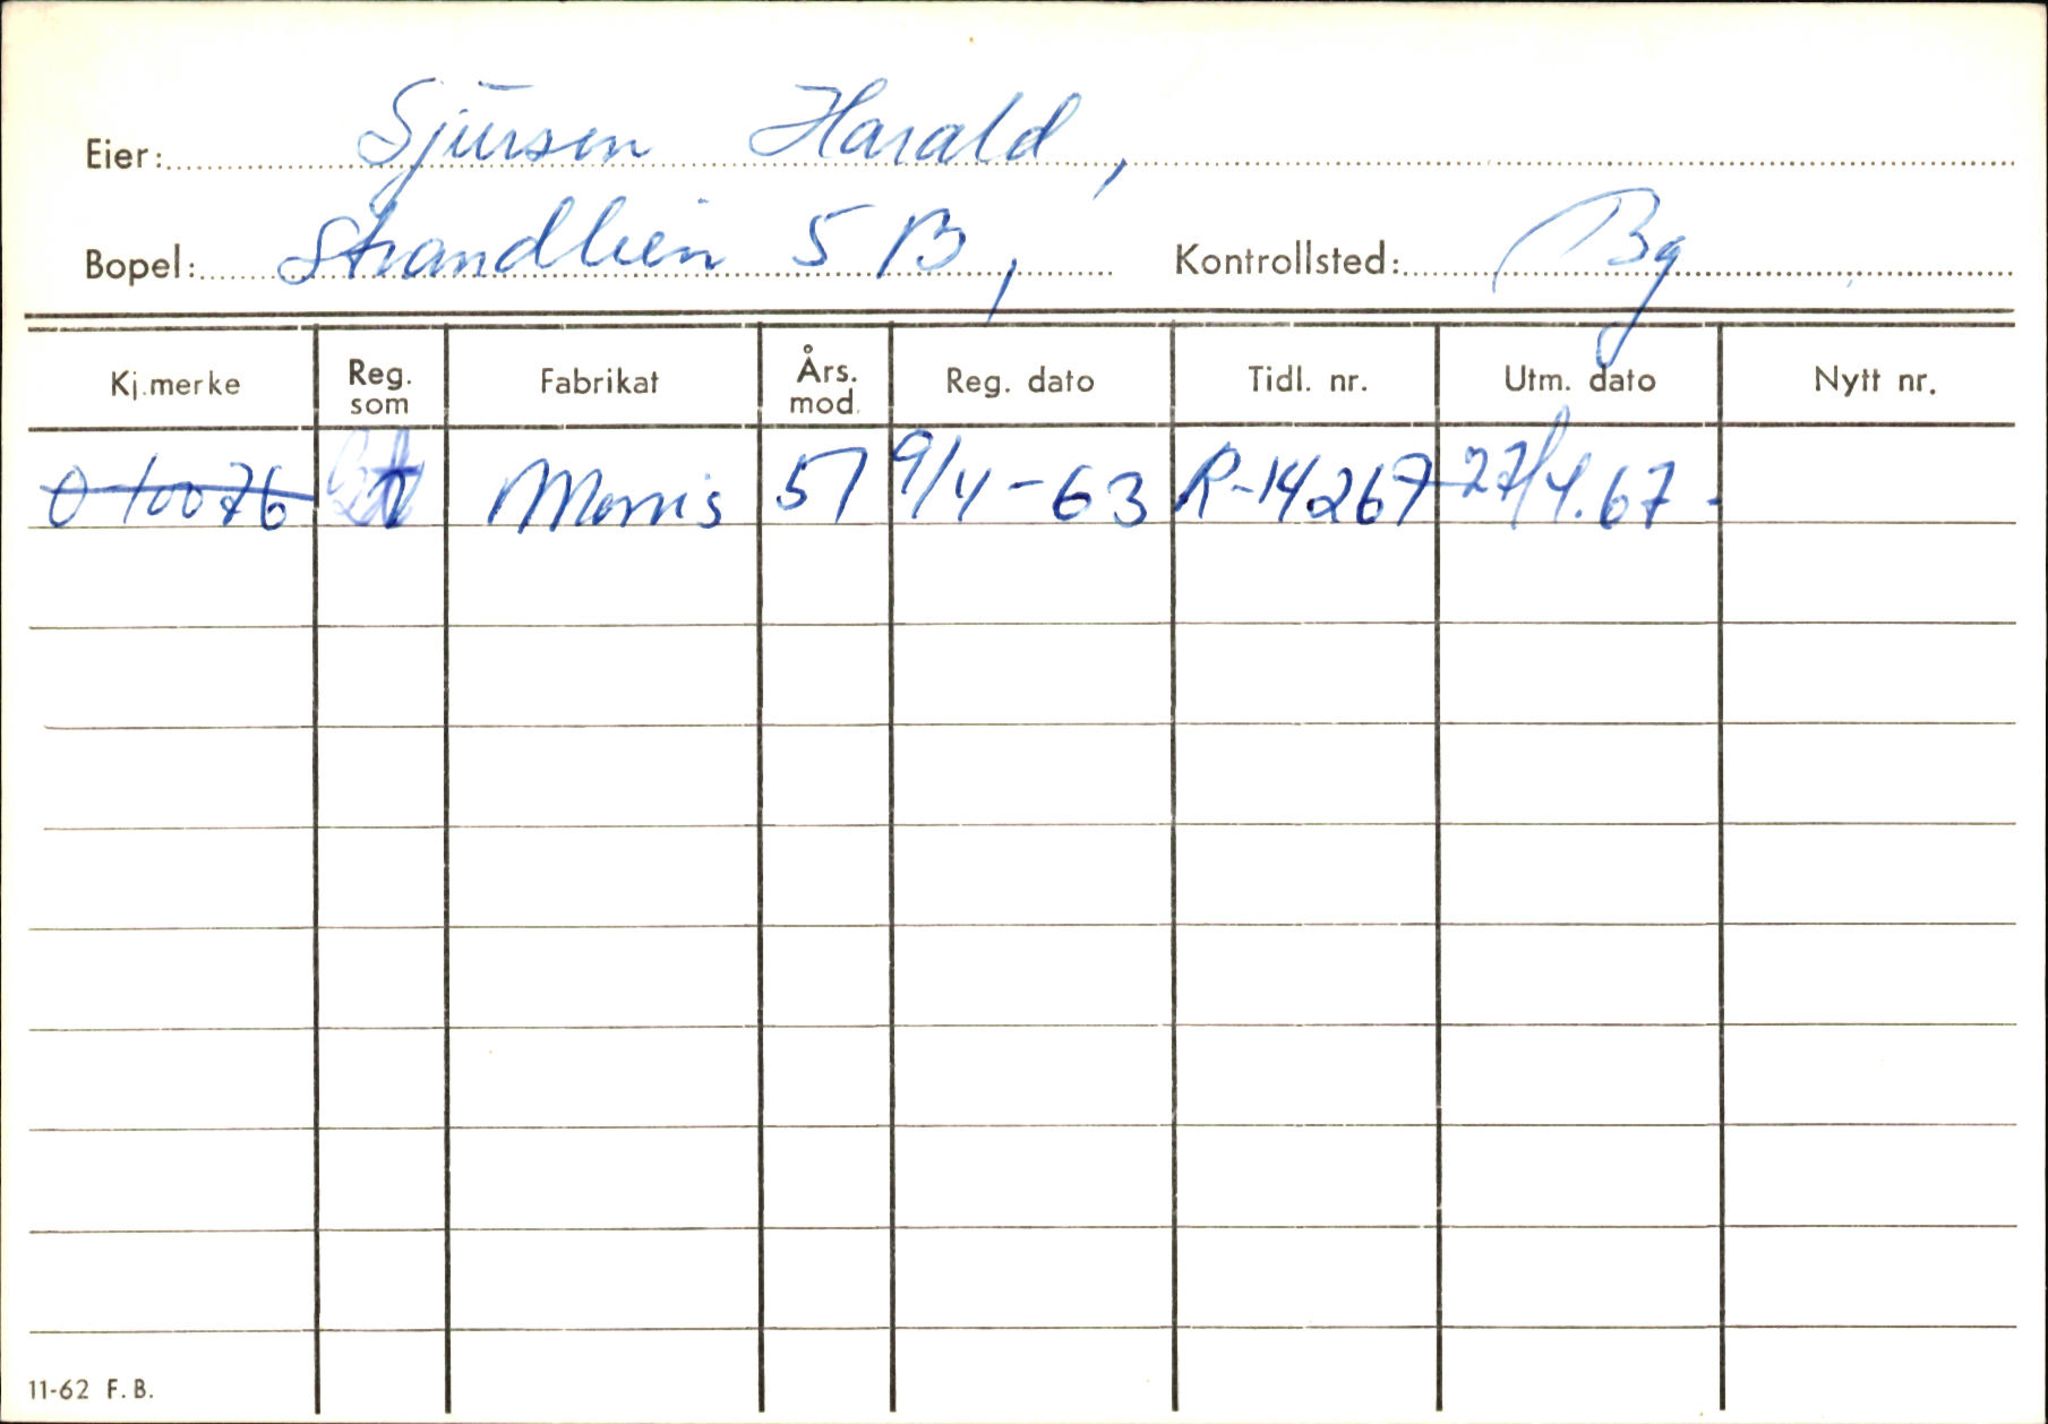 Eier: Sjursen Harald,
Bopel: Strandlien 5 B, Kontrollsted: Bg
Kj.merke Reg. som Fabrikat Års. mod. Reg. dato Tidl. nr. Utm. dato Nytt nr.
O 10076 Morris 57 9/4-63 R-14267 27/4.67-
11-62 F.B.